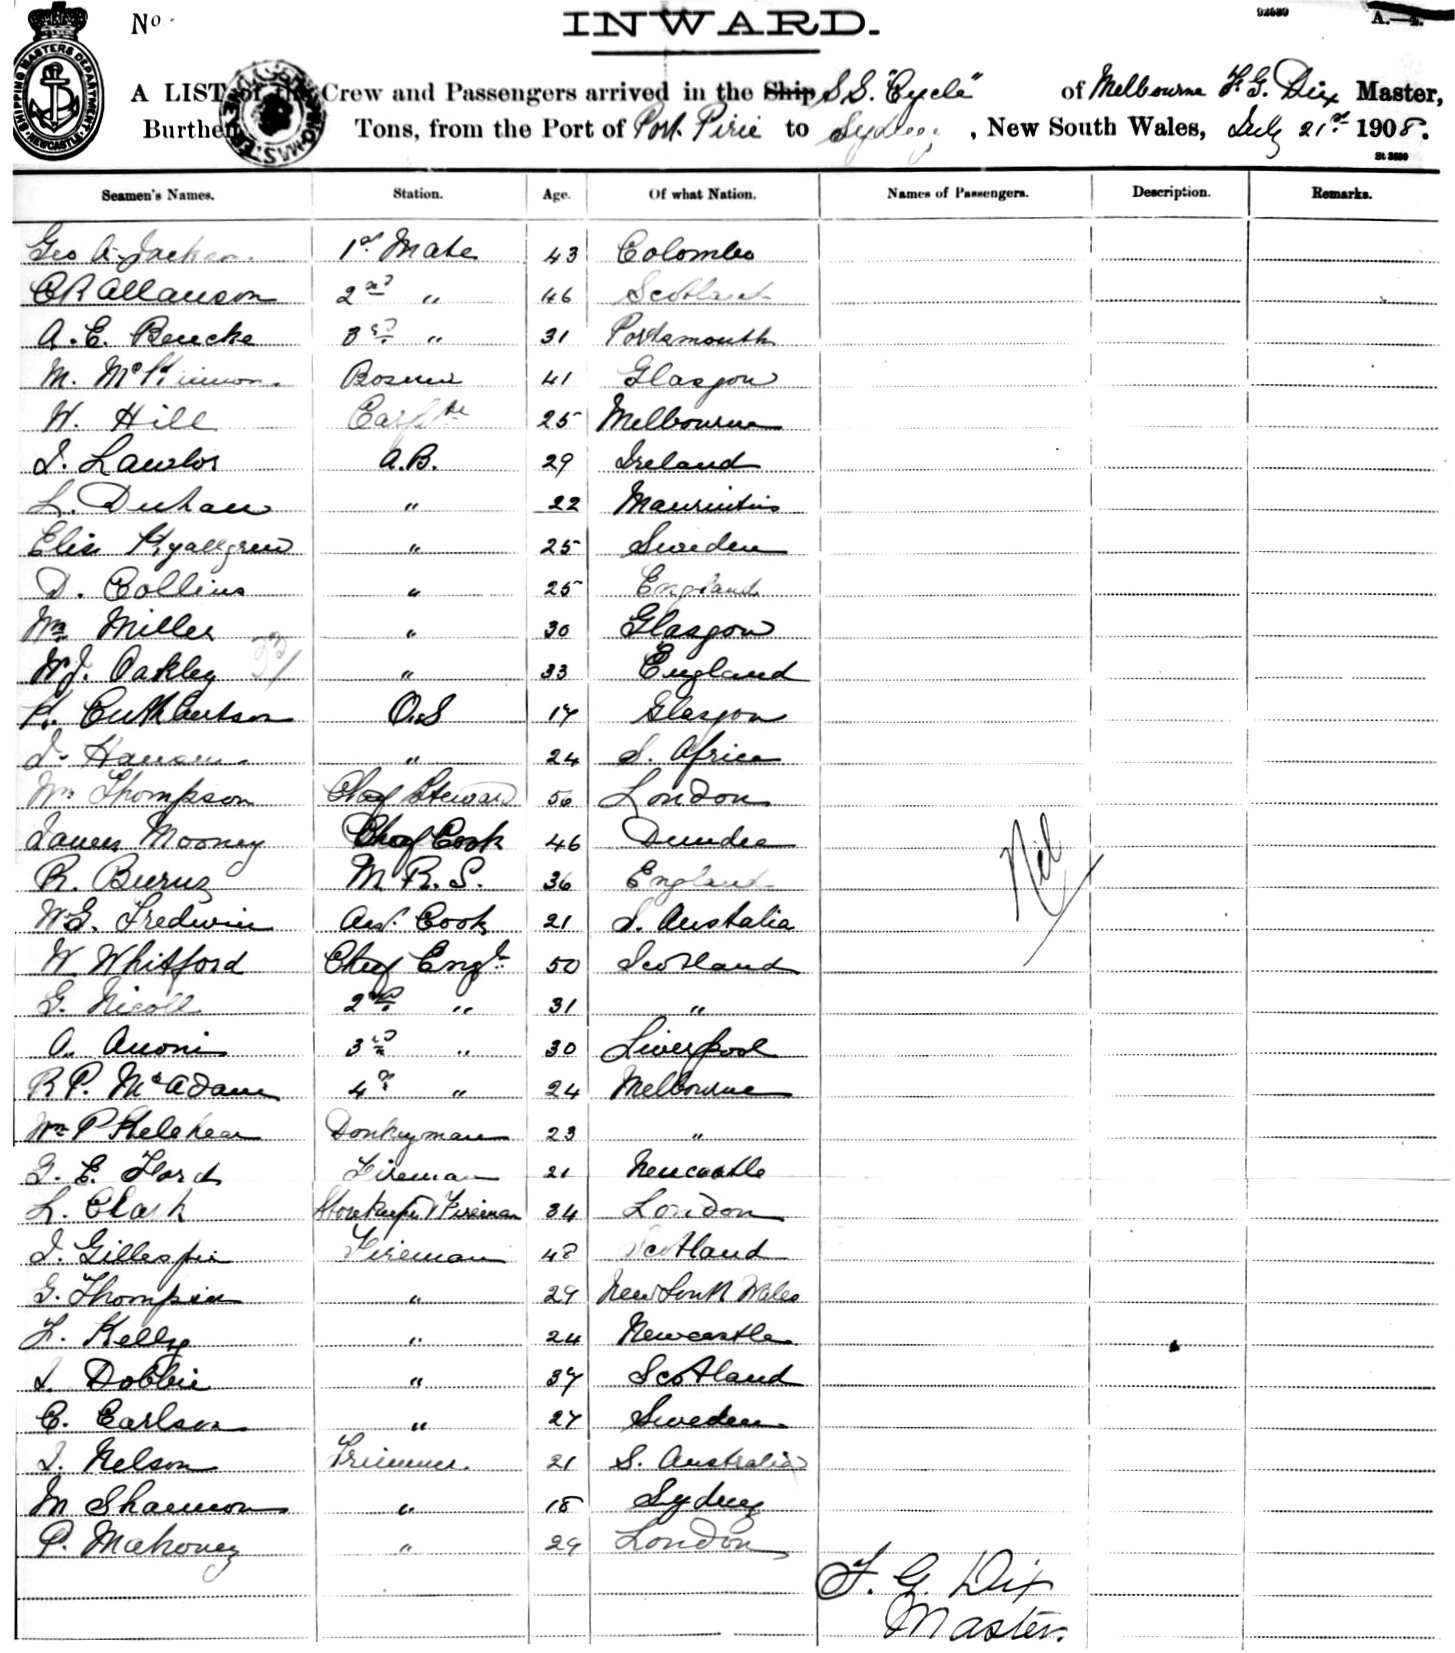 No. INWARD. 92539 A.—2.
SHIPPING MASTERS DEPARTMENT NEWCASTLE
A LIST of the Crew and Passengers arrived in the Ship S.S. "Cycle" of Melbourne F. G. Dix Master,
Burthen Tons, from the Port of Port Pirie to Sydney, New South Wales, July 21st 1908.
St 3600
Seamen's Names. Station. Age. Of what Nation. Names of Passengers. Description. Remarks.
Geo A. Jackson 1st Mate 43 Colombo
C R Allanson 2nd " 46 Scotland
A. E. Beucke 3rd " 31 Portsmouth
M. McKinnon Bosun 41 Glasgow
W. Hill Carptr 25 Melbourne
J. Lawlor A.B. 29 Ireland
L. Duhau " 22 Mauritius
Elis Kyallgren " 25 Sweden
D. Collins " 25 England
Wm Miller " 30 Glasgow
W.J. Oakley " 33 England
K. Cuthbertson O.S 17 Glasgow
J. Hansen " 24 S. Africa
Wm Thompson Chief Steward 56 London
James Mooney Chief Cook 46 Dundee
R. Burns M. R. S. 36 England
W.G. Fredwin Ast. Cook 21 S. Australia
Nil
W Whitford Chief Engr 50 Scotland
G. Nicoll 2nd " 31 "
A. Auoni 3rd " 30 Liverpool
R P. McAdam 4th " 24 Melbourne
Wm P Kelehear Donkeyman 23 "
G. E. Ford Fireman 21 Newcastle
L. Clark Storekeeper & Fireman 34 London
J. Gillespie Fireman 48 Scotland
G. Thompson " 29 New South Wales
F. Kelly " 24 Newcastle
J. Dobbie " 37 Scotland
C. Carlson " 27 Sweden
J. Nelson Trimmer 21 S. Australia
M Shannon " 18 Sydney
P. Mahoney " 29 London
F. G. Dix
Master.